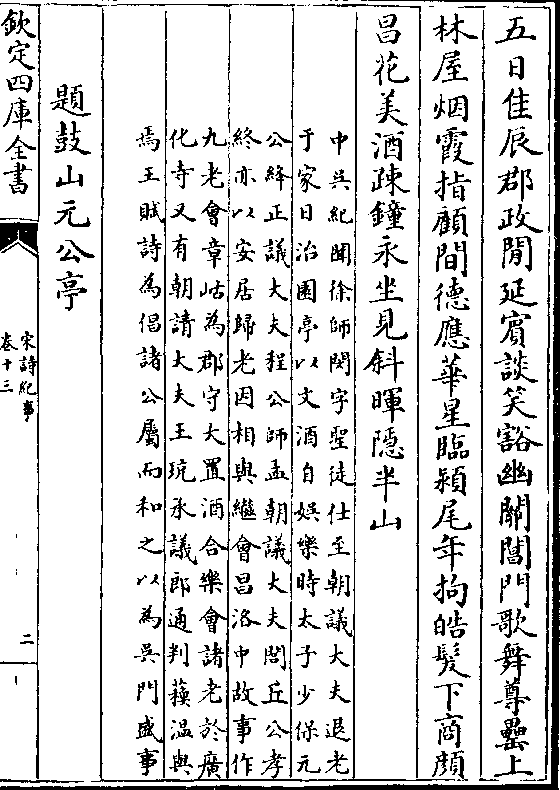 五日佳辰郡政閒延賔談笑豁幽關閶門歌舞尊罍上
林屋烟霞指顧間德應華星臨潁尾年拘皓髮下商顔
昌花美酒疎鐘永坐見斜暉隠半山
中吳紀聞徐師閔字聖徒仕至朝議大夫退老
于家日治園亭以文酒自娯樂時太子少保元
公絳正議大夫程公師孟朝議大夫閭丘公孝
終亦以安居歸老因相與繼會昌洛中故事作
九老會章岵為郡守大置酒合樂會諸老於廣
化寺又有朝請大夫王珫承議郎通判蘓温與
焉王賦詩為倡諸公屬而和之以為吳門盛事
題鼓山元公亭
欽定四庫全書
宋詩紀事
卷十三
二